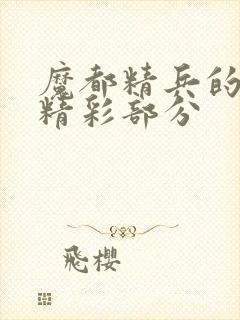 魔都精兵的
精彩部分
飛櫻